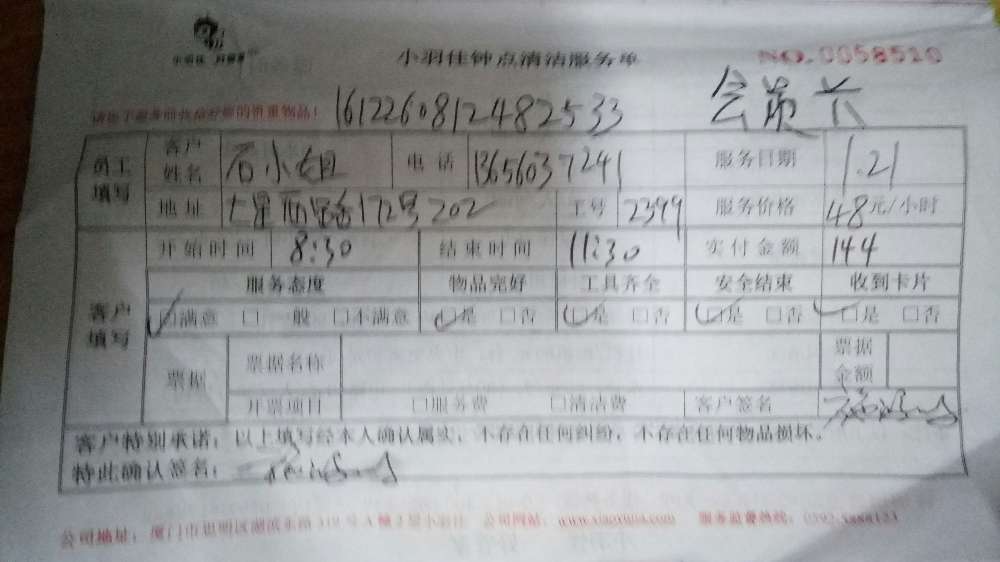 小羽佳 好管家
小羽佳钟点清洁服务单 NO.0058510
1612260812482533 会员卡
员工填写 客户姓名 石小姐 电话 13656037241 服务日期 1.21
地址 172号202 工号 2399 服务价格 48元/小时
开始时间 8:30 结束时间 11:30 实付金额 144
客户填写 服务态度 物品完好 工具齐全 安全结束 收到卡片
☑满意 □一般 □不满意 ☑是 □否 ☑是 □否 ☑是 □否 ☑是 □否
票据 票据名称 票据金额
开票项目 □服务费 □清洁费 客户签名
客户特别承诺:以上填写经本人确认属实,不存在任何纠纷,不存在任何物品损坏。
特此确认签名:
公司地址:厦门市思明区湖滨东路319号A幢2层小羽佳 公司网站: 服务监督热线: